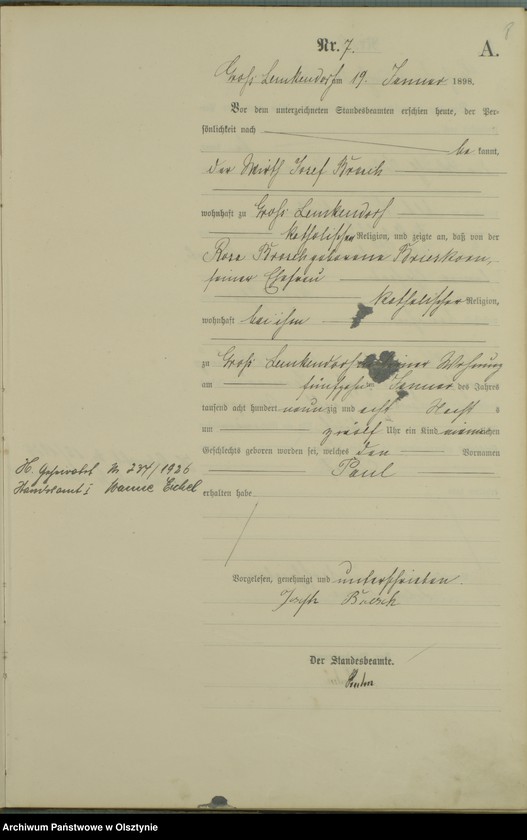 8
Nr. 7.
A.
Groß Lemkendorf am 19. Januar 1898.
Vor dem unterzeichneten Standesbeamten erschien heute, der Per-
sönlichkeit nach
be kannt,
der Wirth Josef
wohnhaft zu Groß Lemkendorf
katholischer Religion, und zeigte an, daß von der
Rosa geborene
seiner Ehefrau
katholischer Religion,
wohnhaft bei ihm
zu Groß Lemkendorf in seiner Wohnung
am fünfzehnten Januar des Jahres
tausend acht hundert neunzig und acht
um zwölf Uhr ein Kind männlichen
Geschlechts geboren worden sei, welches den Vornamen
Paul
H. Nr. 234/1926
Standesamt I Wanne Eickel
erhalten habe
Vorgelesen, genehmigt und unterschrieben.
Joseph
Der Standesbeamte.
Archiwum Państwowe w Olsztynie